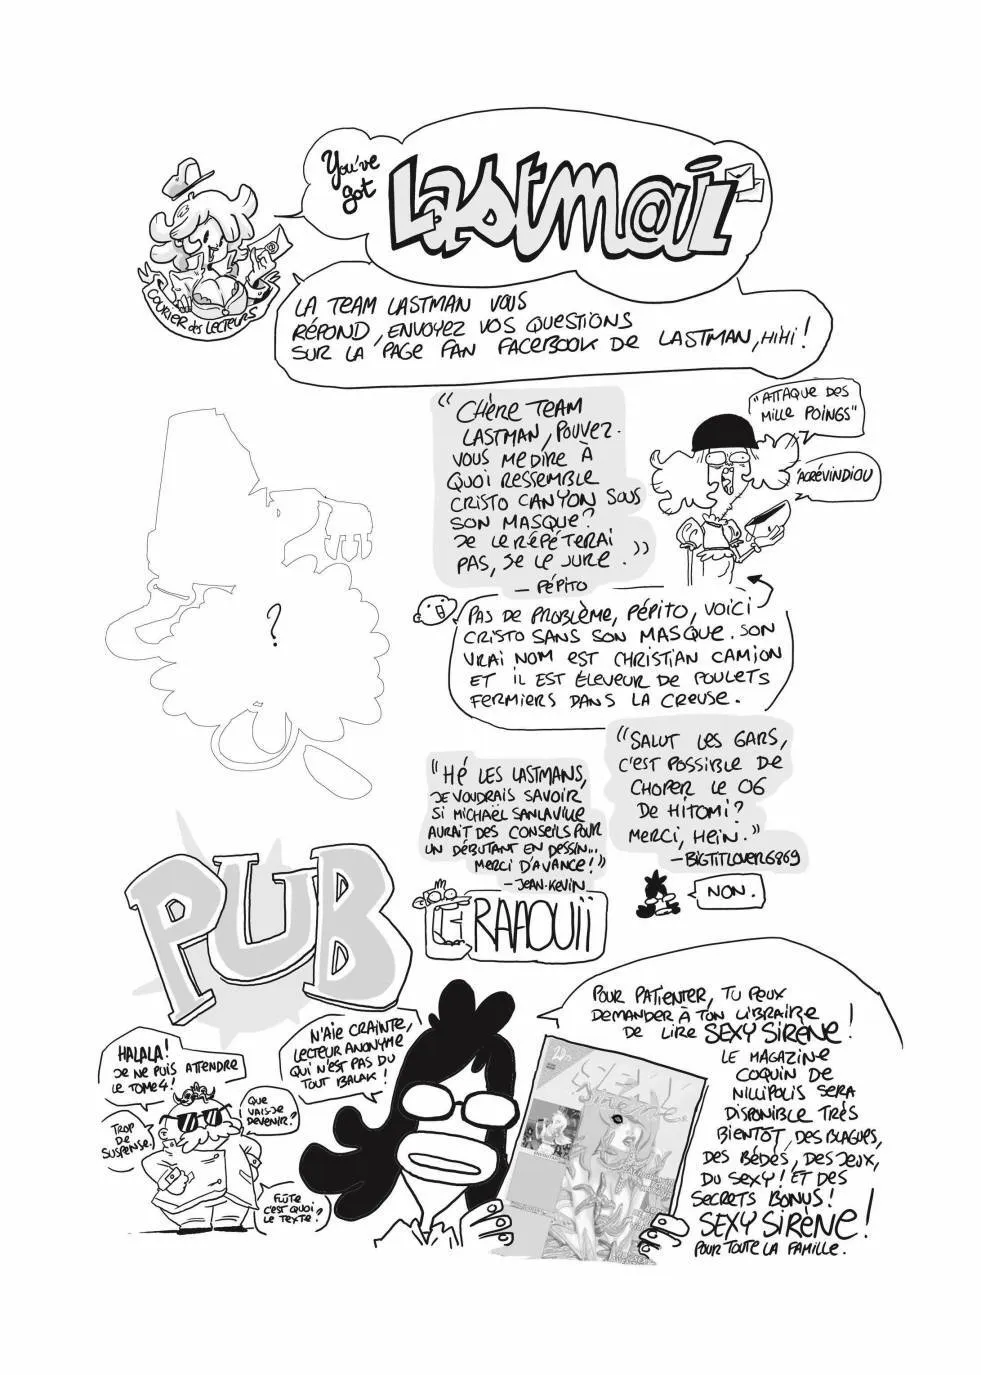 You've
got
Lastm@il
COURIER des LECTEURS
LA TEAM LASTMAN VOUS
RÉPOND, ENVOYEZ VOS QUESTIONS
SUR LA PAGE FAN FACEBOOK DE LASTMAN, HIHI!
"CHÈRE TEAM
LASTMAN, POUVEZ-
VOUS ME DIRE À
QUOI RESSEMBLE
CRISTO CANYON SOUS
SON MASQUE?
JE LE RÉPÉTERAI
PAS, JE LE JURE."
— PÉPITO
"ATTAQUE DES
MILLE POINGS"
'ACRÉVINDIOU
?
PAS DE PROBLÈME, PÉPITO, VOICI
CRISTO SANS SON MASQUE. SON
VRAI NOM EST CHRISTIAN CAMION
ET IL EST ÉLEVEUR DE POULETS
FERMIERS DANS LA CREUSE.
"HÉ LES LASTMANS,
JE VOUDRAIS SAVOIR
SI MICHAËL SANLAVILLE
AURAIT DES CONSEILS POUR
UN DÉBUTANT EN DESSIN...
MERCI D'AVANCE!"
— JEAN-KEVIN
RAAOUIÏ
"SALUT LES GARS,
C'EST POSSIBLE DE
CHOPER LE 06
DE HITOMI?
MERCI, HEIN."
— BIGTITLOVER6969
NON.
PUB
HALALA!
JE NE PUIS ATTENDRE
LE TOME 4!
TROP
DE
SUSPENSE.
QUE
VAIS-JE
DEVENIR?
FLÛTE
C'EST QUOI
LE TEXTE?
N'AIE CRAINTE,
LECTEUR ANONYME
QUI N'EST PAS DU
TOUT BALAK!
POUR PATIENTER, TU PEUX
DEMANDER À TON LIBRAIRE
DE LIRE SEXY SIRÈNE!
LE MAGAZINE
COQUIN DE
NILLIPOLIS SERA
DISPONIBLE TRÈS
BIENTÔT, DES BLAGUES,
DES BÉDÉS, DES JEUX,
DU SEXY! ET DES
SECRETS BONUS!
SEXY SIRÈNE!
POUR TOUTE LA FAMILLE.
SEXY
Sirène